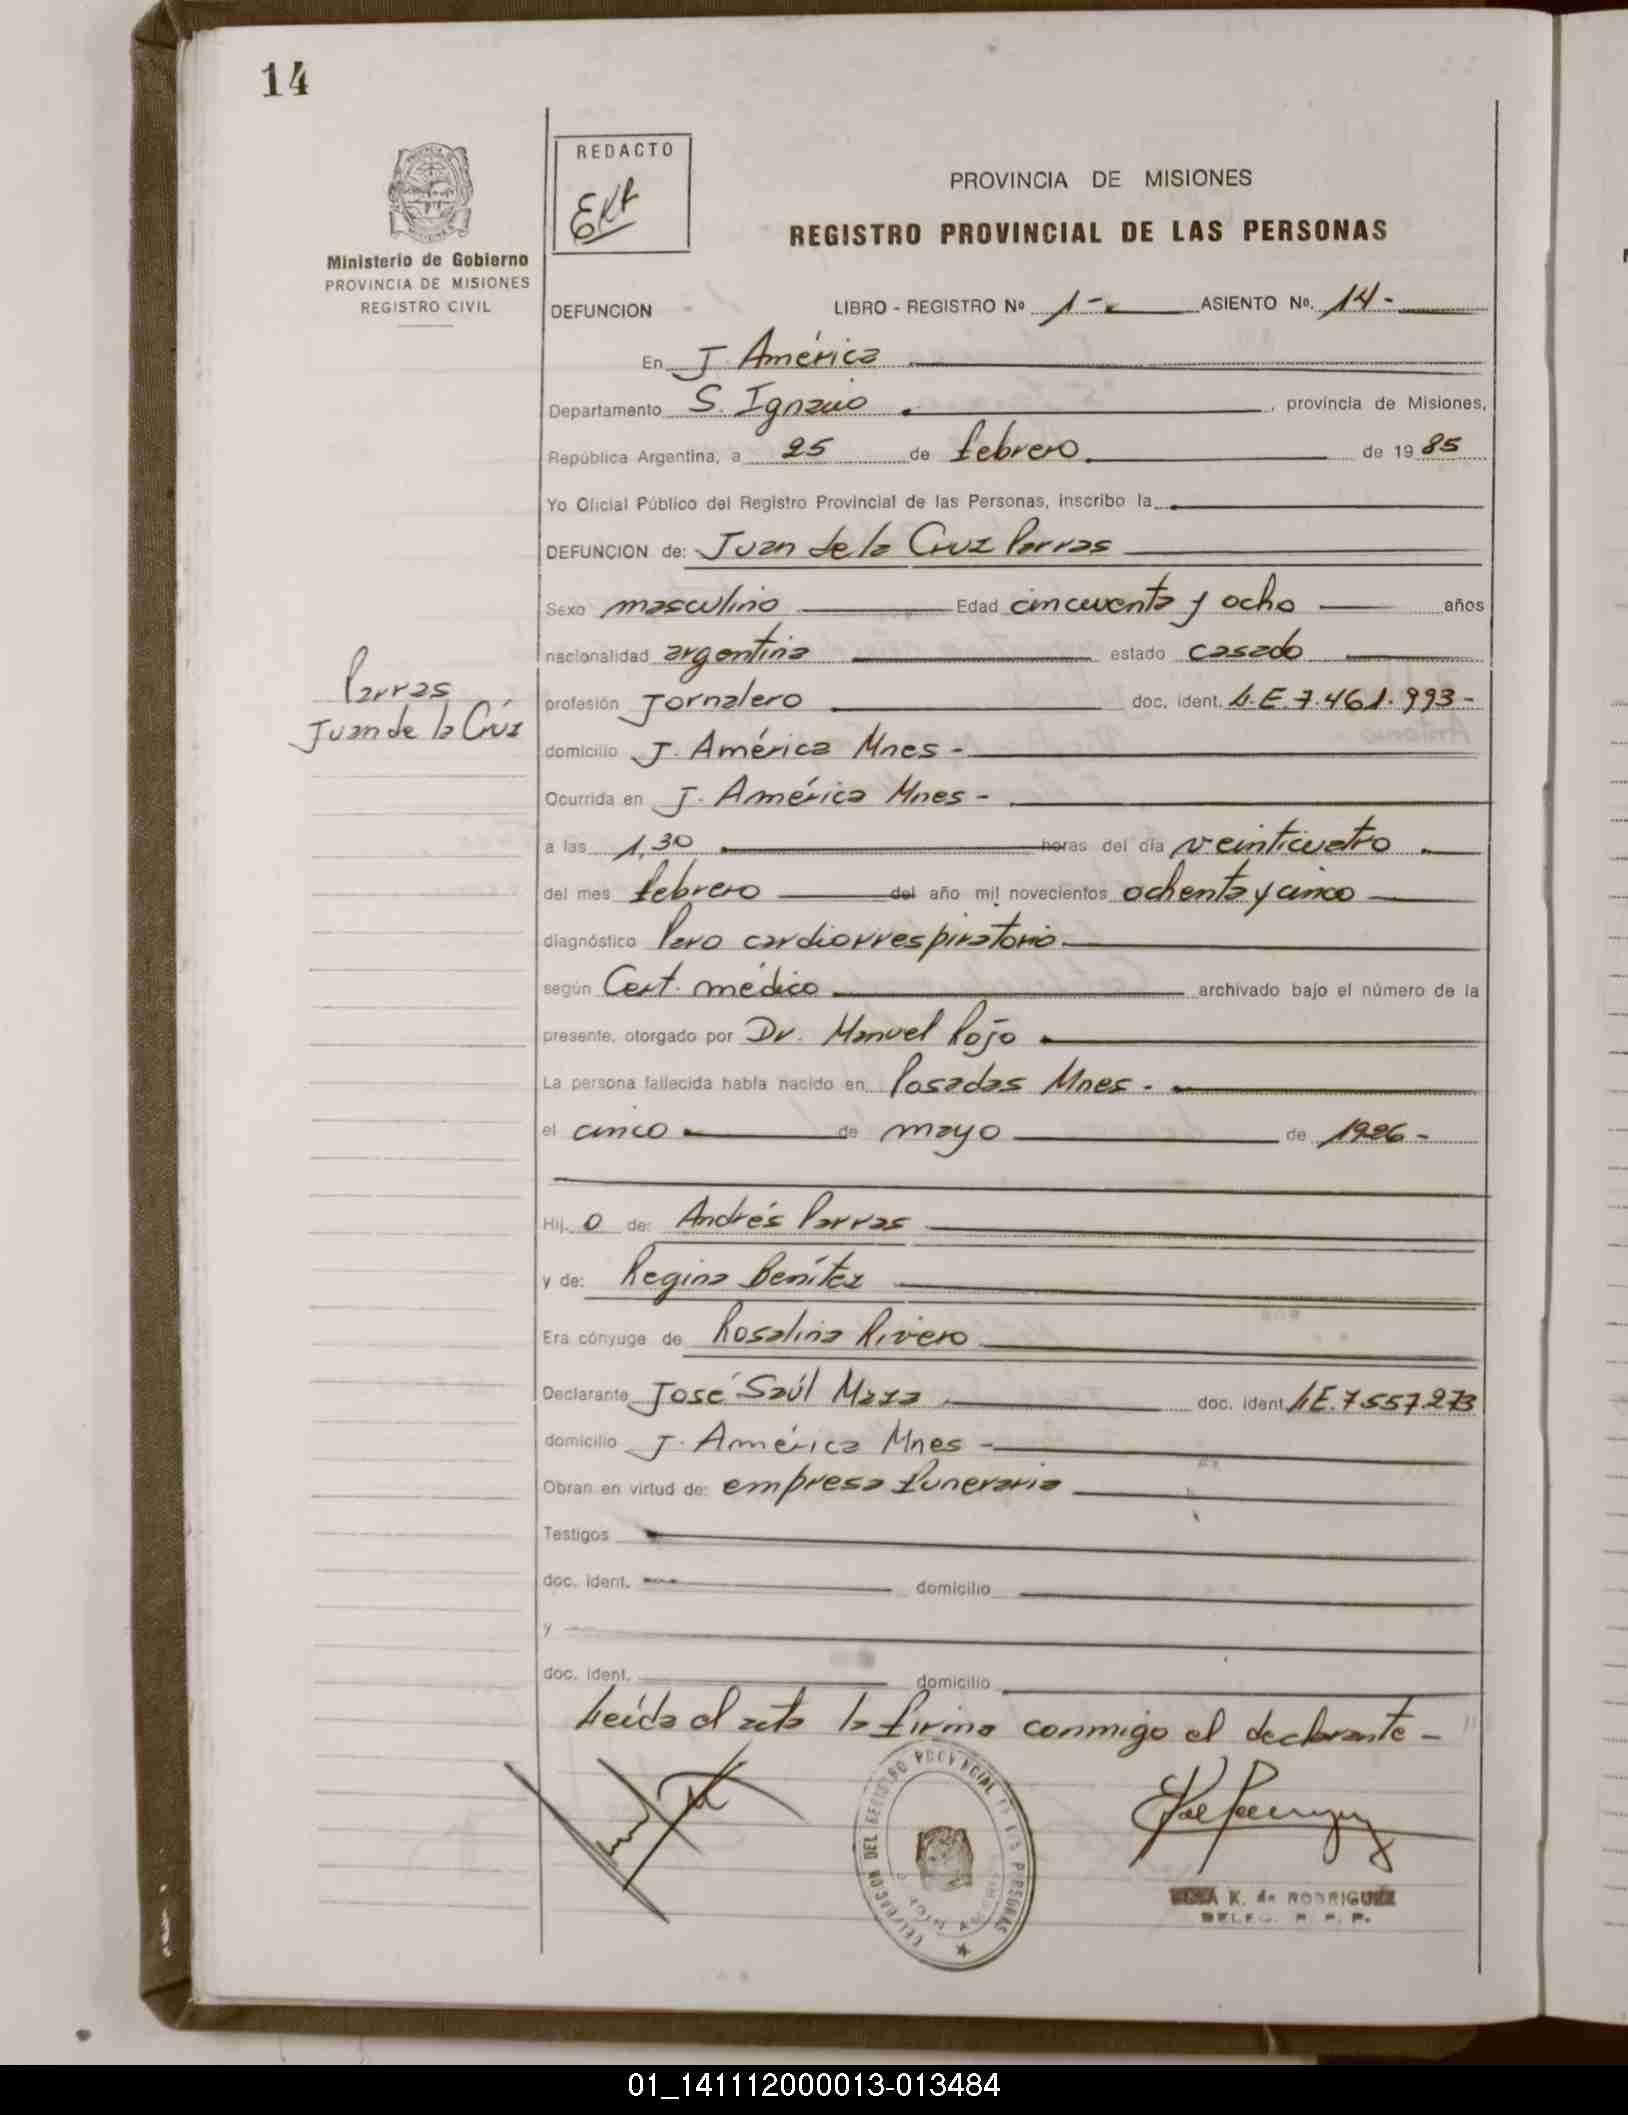 14
REDACTO
Ministerio de Gobierno
PROVINCIA DE MISIONES
REGISTRO CIVIL
PROVINCIA DE MISIONES
REGISTRO PROVINCIAL DE LAS PERSONAS
DEFUNCION LIBRO - REGISTRO Nº 1- ASIENTO Nº. 14-
En J. América
Departamento S. Ignacio, provincia de Misiones,
República Argentina, a 25 de febrero de 1985
Yo Oficial Público del Registro Provincial de las Personas, inscribo la
DEFUNCION de: Juan de la Cruz Parras
Sexo masculino Edad cincuenta y ocho años
nacionalidad argentina estado casado
Parras
Juan de la Cruz
profesión Jornalero doc. ident. L.E. 7.461.993-
domicilio J. América Mnes-
Ocurrida en J. América Mnes-
a las 1,30 horas del día veinticuatro
del mes febrero del año mil novecientos ochenta y cinco
diagnóstico Paro cardiorrespiratorio
según Cert. médico archivado bajo el número de la
presente, otorgado por Dr. Manuel Rojo
La persona fallecida había nacido en Posadas Mnes-
el cinco de mayo de 1926-
Hij o de: Andrés Parras
y de: Regina Benítez
Era cónyuge de Rosalina Rivero
Declarante José Saúl Maza doc. ident. LE. 7557273
domicilio J. América Mnes-
Obran en virtud de: empresa funeraria
Testigos
doc. ident. domicilio
y
doc. ident. domicilio
Leída el acta la firma conmigo el declarante-
DELEGACION DEL REGISTRO PROVINCIAL DE LAS PERSONAS
K. de RODRIGUEZ
DELEG. R. P. P.
01_141112000013-013484